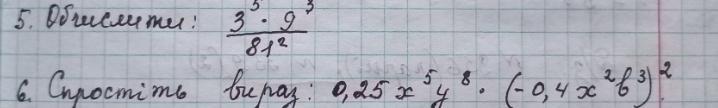 5. Обчислити: 3⁵ · 9³ / 81²
6. Спростіть вираз: 0,25x⁵y⁸ · (-0,4x²b³)²